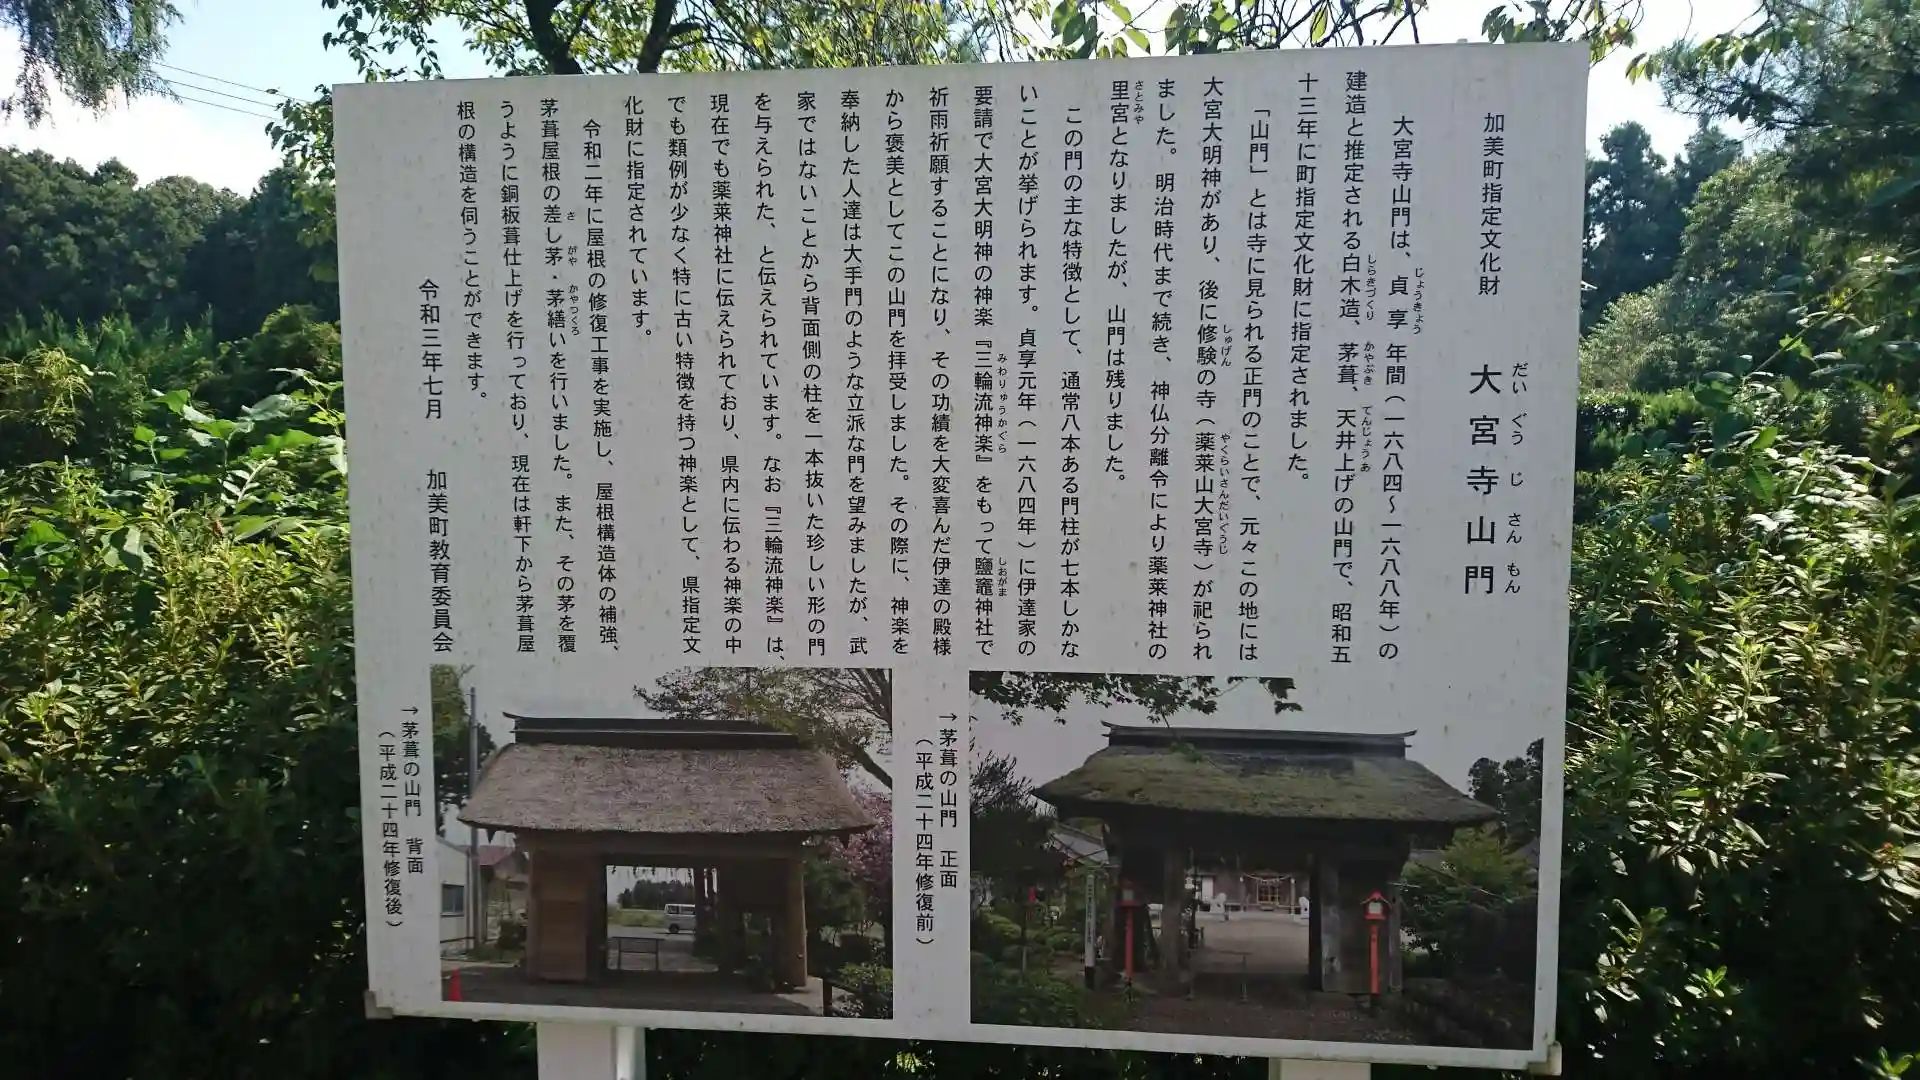 加美町指定文化財　大宮寺山門
だいぐうじさんもん
大宮寺山門は、貞享年間（一六八四～一六八八年）の
じょうきょう
建造と推定される白木造、茅葺、天井上げの山門で、昭和五
しらきづくり　かやぶき　てんじょうあ
十三年に町指定文化財に指定されました。
「山門」とは寺に見られる正門のことで、元々この地には
大宮大明神があり、後に修験の寺（薬莱山大宮寺）が祀られ
しゅげん　やくらいさんだいぐうじ
ました。明治時代まで続き、神仏分離令により薬莱神社の
里宮となりましたが、山門は残りました。
さとみや
この門の主な特徴として、通常八本ある門柱が七本しかな
いことが挙げられます。貞享元年（一六八四年）に伊達家の
要請で大宮大明神の神楽『三輪流神楽』をもって鹽竈神社で
みわりゅうかぐら　しおがま
祈雨祈願することになり、その功績を大変喜んだ伊達の殿様
から褒美としてこの山門を拝受しました。その際に、神楽を
奉納した人達は大手門のような立派な門を望みましたが、武
家ではないことから背面側の柱を一本抜いた珍しい形の門
を与えられた、と伝えられています。なお『三輪流神楽』は、
現在でも薬莱神社に伝えられており、県内に伝わる神楽の中
でも類例が少なく特に古い特徴を持つ神楽として、県指定文
化財に指定されています。
令和二年に屋根の修復工事を実施し、屋根構造体の補強、
茅葺屋根の差し茅・茅繕いを行いました。また、その茅を覆
さ　がや　かやつくろ
うように銅板葺仕上げを行っており、現在は軒下から茅葺屋
根の構造を伺うことができます。
令和三年七月　加美町教育委員会
→茅葺の山門　正面
（平成二十四年修復前）
→茅葺の山門　背面
（平成二十四年修復後）